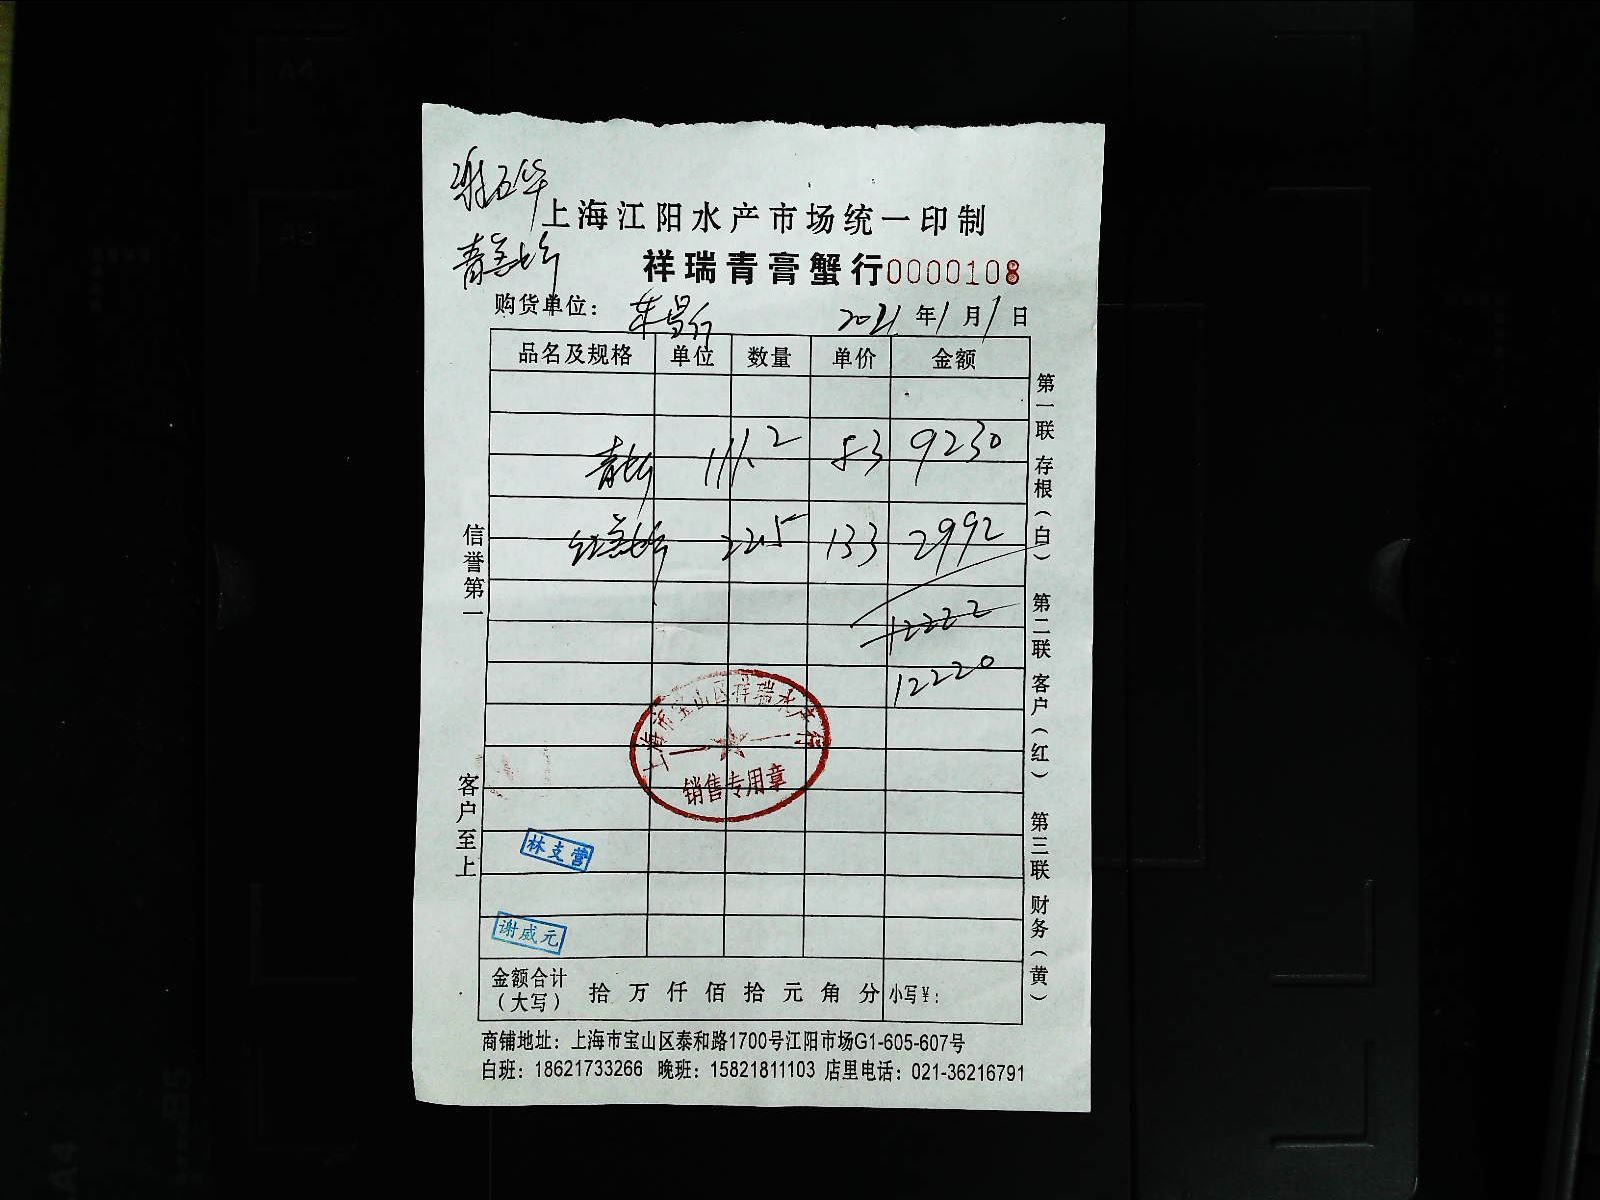 上海江阳水产市场统一印制
祥瑞青膏蟹行0000108
购货单位： 2021年1月1日
品名及规格 单位 数量 单价 金额
111.2 83 9230
22.5 133 2992
12222
12220
信誉第一
客户至上
第一联 存根（白） 第二联 客户（红） 第三联 财务（黄）
上海市宝山区祥瑞水产行
销售专用章
林支营
谢威元
金额合计（大写） 拾 万 仟 佰 拾 元 角 分 小写¥：
商铺地址：上海市宝山区泰和路1700号江阳市场G1-605-607号
白班：18621733266 晚班：15821811103 店里电话：021-36216791